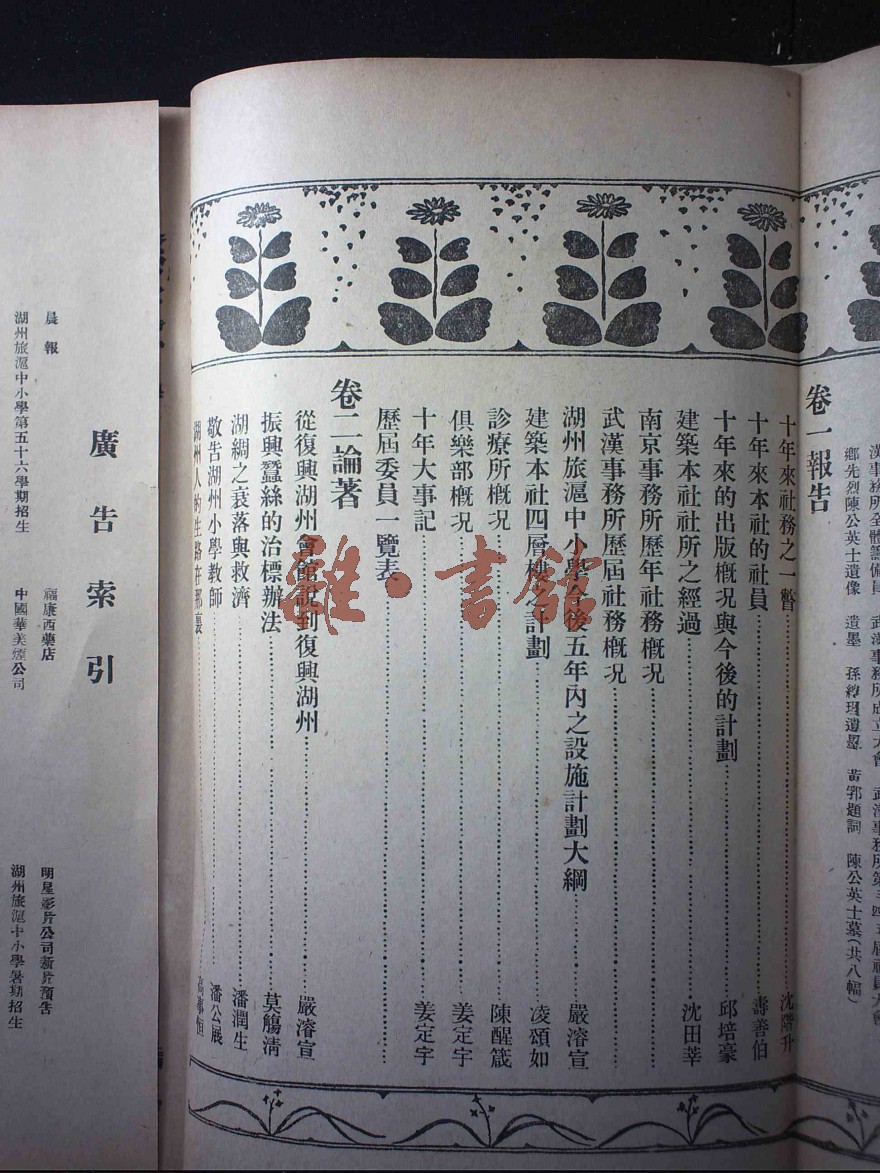 漢事務所全體籌備員 武漢事務所成立大會
鄉先烈陳公英士遺像 遺墨 黃郛題詞 陳公英士墓(共八幅)
卷一報告
十年來社務之一瞥 沈階升
十年來本社的社員 壽善伯
十年來的出版概况與今後的計劃 邱培豪
建築本社社所之經過 沈田莘
南京事務所歷年社務概况
武漢事務所歷屆社務概况
湖州旅滬中小學今後五年內之設施計劃大綱 嚴濬宣
建築本社四層樓之計劃 凌頌如
診療所概况 陳醒箴
俱樂部概况 姜定宇
十年大事記 姜定宇
歷屆委員一覽表
卷二論著
從復興湖州會館説到復興湖州 嚴濬宣
振興蠶絲的治標辦法 莫觴清
湖綢之衰落與救濟 潘潤生
敬告湖州小學教師 潘公展
湖州人的生路在那裏
廣告索引
晨報 福康西藥店 明星影片公司新片預告
湖州旅滬中小學第五十六學期招生 中國華美煙公司 湖州旅滬中小學暑期招生
雜·書館